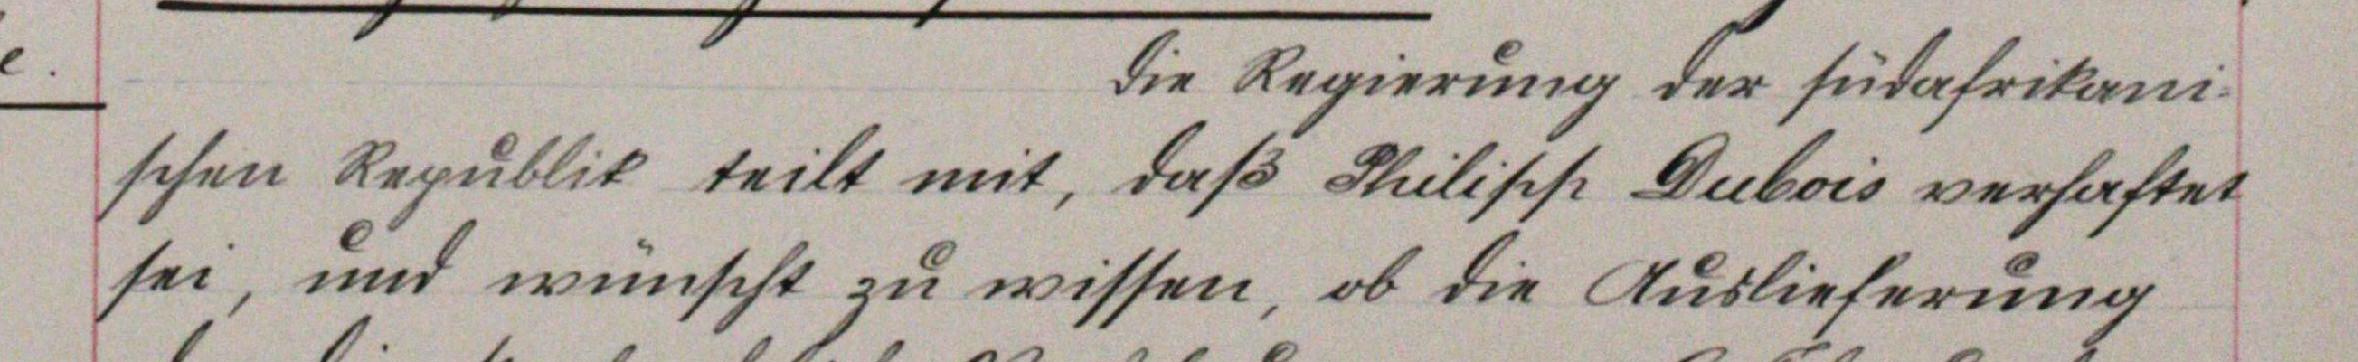 die Regierung der südafrikani-
schen Republik teilt mit, daß Philipp Dubois verhaftet
sei, und wünscht zu wissen, ob die Auslieferung